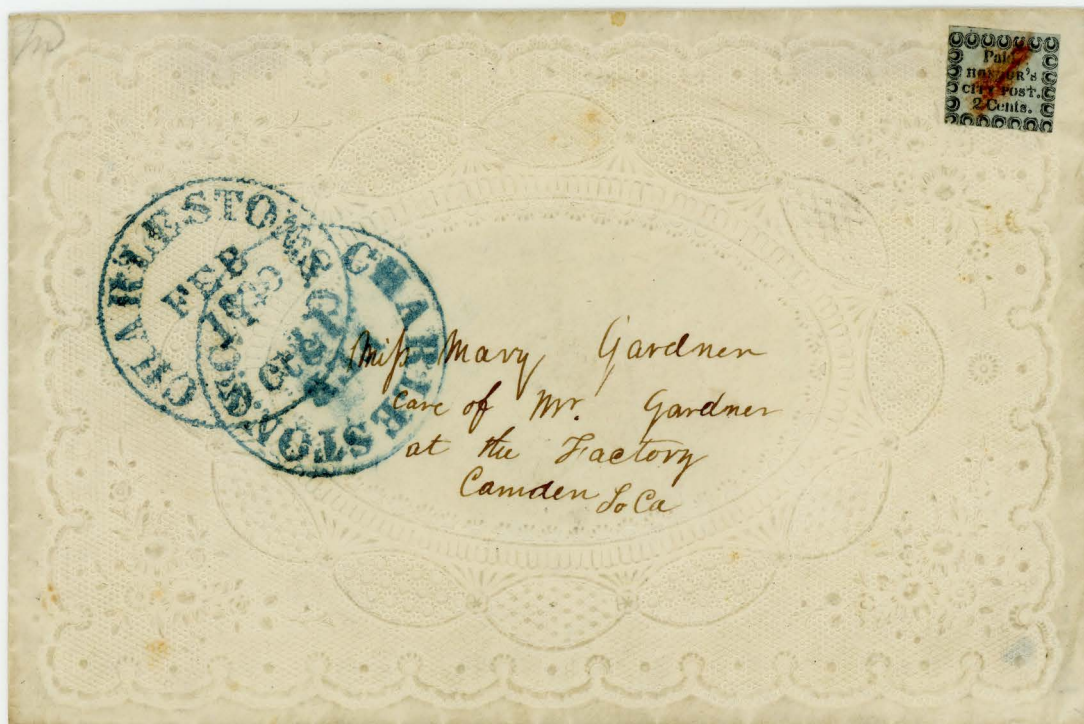 Paid
HONOUR's
CITY POST.
2 Cents.
CHARLESTON S.C.
FEB
CHARLESTON
Miss Mary Gardner
care of Mr. Gardner
at the Factory
Camden So Ca